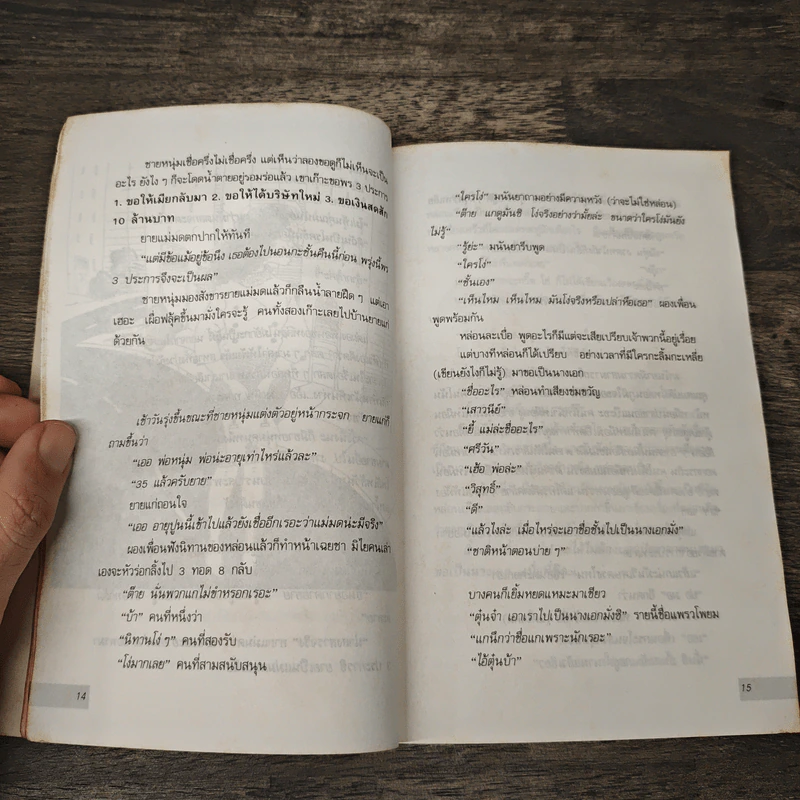 ชายหนุ่มเชื่อครึ่งไม่เชื่อครึ่ง แต่เห็นว่าลองขอดูก็ไม่เห็นจะเป็น
อะไร ยังไง ๆ ก็จะโดดน้ำตายอยู่รอมร่อแล้ว เขาเก๊าะขอพร 3 ประการ
1. ขอให้เมียกลับมา 2. ขอให้ได้บริษัทใหม่ 3. ขอเงินสดสัก
10 ล้านบาท
ยายแม่มดตกปากให้ทันที
“แต่มีข้อแม้อยู่ข้อนึง เธอต้องไปนอนกะชั้นคืนนี้ก่อน พรุ่งนี้พร
3 ประการจึงจะเป็นผล”
ชายหนุ่มมองสังขารยายแม่มดแล้วก็กลืนน้ำลายฝืด ๆ แต่เอา
เฮอะ เผื่อฟลุ้คขึ้นมามั่งใครจะรู้ คนทั้งสองเก๊าะเลยไปบ้านยายแก่
ด้วยกัน
เช้าวันรุ่งขึ้นขณะที่ชายหนุ่มแต่งตัวอยู่หน้ากระจก ยายแก่ก็
ถามขึ้นว่า
“เออ พ่อหนุ่ม พ่อน่ะอายุเท่าไหร่แล้วละ”
“35 แล้วครับยาย”
ยายแก่ถอนใจ
“เออ อายุปูนนี้เข้าไปแล้วยังเชื่ออีกเรอะว่าแม่มดน่ะมีจริง”
ผองเพื่อนฟังนิทานของหล่อนแล้วก็ทำหน้าเฉยชา มิไยคนเล่า
เองจะหัวร่อกลิ้งไป 3 ทอด 8 กลับ
“ต๊าย นั่นพวกแกไม่ขำหรอกเรอะ”
“บ้า” คนที่หนึ่งว่า
“นิทานโง่ ๆ” คนที่สองรับ
“โง่มากเลย” คนที่สามสนับสนุน
14
“ใครโง่” มนันยาถามอย่างมีความหวัง (ว่าจะไม่ใช่หล่อน)
“ต๊าย แกดูมันซิ โง่จริงอย่างว่ามั้ยล่ะ ขนาดว่าใครโง่มันยัง
ไม่รู้”
“รู้ย่ะ” มนันยารีบพูด
“ใครโง่”
“ชั้นเอง”
“เห็นไหม เห็นไหม มันโง่จริงหรือเปล่าหือเธอ” ผองเพื่อน
พูดพร้อมกัน
หล่อนละเบื่อ พูดอะไรก็มีแต่จะเสียเปรียบเจ้าพวกนี้อยู่เรื่อย
แต่บางทีหล่อนก็ได้เปรียบ อย่างเวลาที่มีใครกะลิ้มกะเหลี่ย
(เขียนยังไงก็ไม่รู้) มาขอเป็นนางเอก
“ชื่ออะไร” หล่อนทำเสียงข่มขวัญ
“เสาวนีย์”
“ยี้ แม่ล่ะชื่ออะไร”
“ศรีวัน”
“เฮ้อ พ่อล่ะ”
“วิสุทธิ์”
“ดี”
“แล้วไงล่ะ เมื่อไหร่จะเอาชื่อชั้นไปเป็นนางเอกมั่ง”
“ชาติหน้าตอนบ่าย ๆ”
บางคนก็เยิ้มหยดแหมะมาเชียว
“ตุ๋นจ๋า เอาเราไปเป็นนางเอกมั่งซิ” รายนี้ชื่อแพรวโพยม
“แกนึกว่าชื่อแกเพราะนักเรอะ”
“ไอ้ตุ๋นบ้า”
15